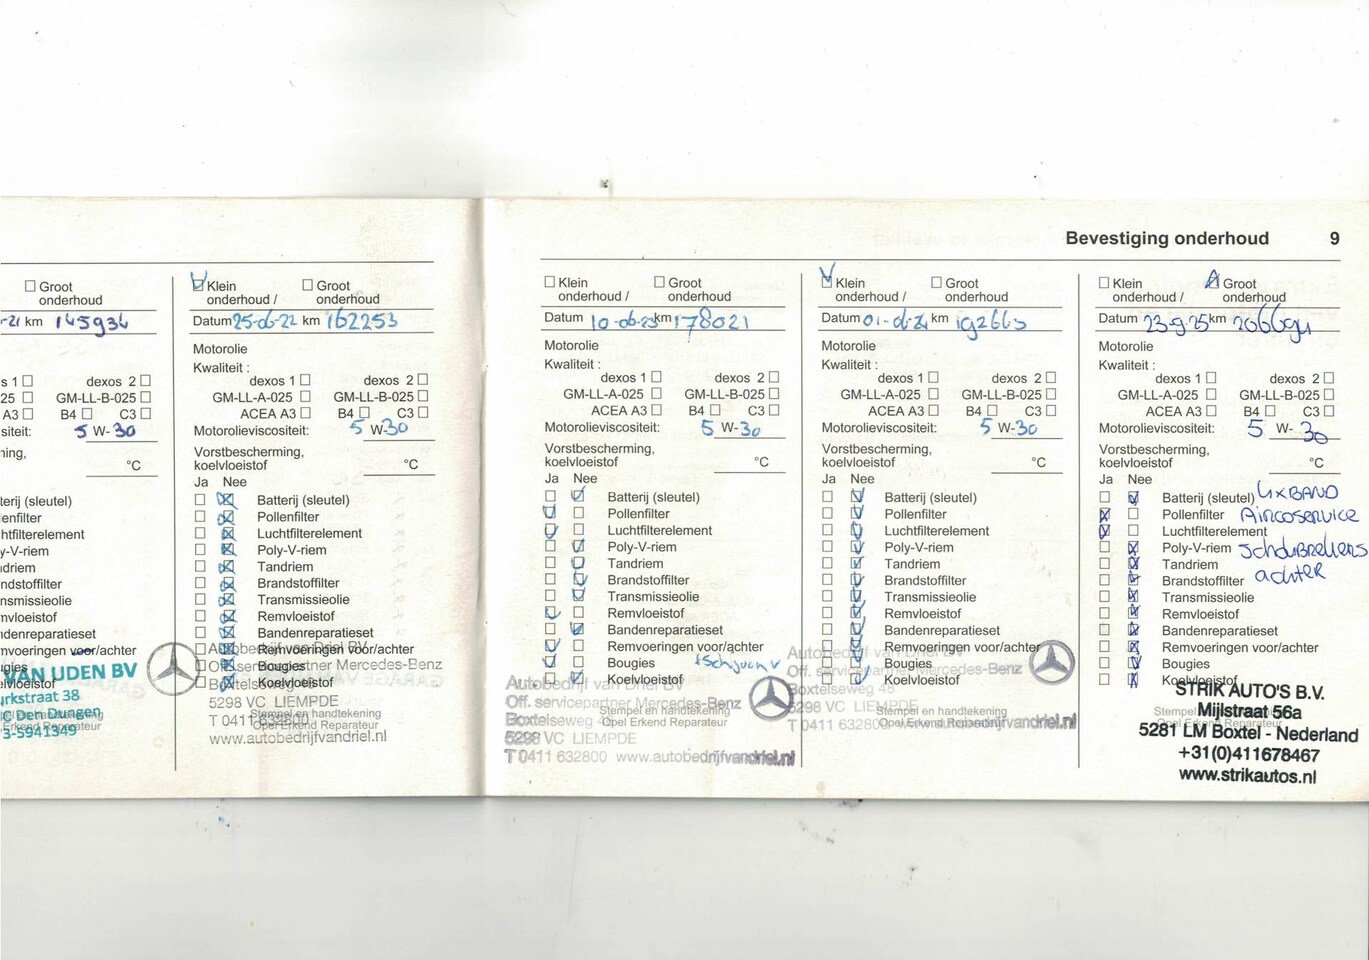 Bevestiging onderhoud 9
Groot
onderhoud
-21 km 145934
s 1 dexos 2
25 GM-LL-B-025
A3 B4 C3
siteit: 5 W-30
ning,
°C
terij (sleutel)
enfilter
htfilterelement
y-V-riem
driem
ndstoffilter
nsmissieolie
mvloeistof
ndenreparatieset
mvoeringen voor/achter
ougies
elvloeistof
VAN UDEN BV
rkstraat 38
Den Dungen
pel en handtekening
Erkend Reparateur
3-5941349
Klein Groot
onderhoud / onderhoud
Datum 25-06-22 km 162253
Motorolie
Kwaliteit :
dexos 1 dexos 2
GM-LL-A-025 GM-LL-B-025
ACEA A3 B4 C3
Motorolieviscositeit: 5 W-30
Vorstbescherming,
koelvloeistof °C
Ja Nee
Batterij (sleutel)
Pollenfilter
Luchtfilterelement
Poly-V-riem
Tandriem
Brandstoffilter
Transmissieolie
Remvloeistof
Bandenreparatieset
Remvoeringen voor/achter
Bougies
Koelvloeistof
Autobedrijf van Driel BV
Off. servicepartner Mercedes-Benz
Boxtelseweg 48
5298 VC LIEMPDE
Stempel en handtekening
Opel Erkend Reparateur
T 0411 632800
www.autobedrijfvandriel.nl
Klein Groot
onderhoud / onderhoud
Datum 10-06-23 km 178021
Motorolie
Kwaliteit :
dexos 1 dexos 2
GM-LL-A-025 GM-LL-B-025
ACEA A3 B4 C3
Motorolieviscositeit: 5 W-30
Vorstbescherming,
koelvloeistof °C
Ja Nee
Batterij (sleutel)
Pollenfilter
Luchtfilterelement
Poly-V-riem
Tandriem
Brandstoffilter
Transmissieolie
Remvloeistof
Bandenreparatieset
Remvoeringen voor/achter
Bougies
Koelvloeistof
Autobedrijf van Driel BV
Off. servicepartner Mercedes-Benz
Boxtelseweg 48
Stempel en handtekening
Opel Erkend Reparateur
5298 VC LIEMPDE
T 0411 632800 www.autobedrijfvandriel.nl
Klein Groot
onderhoud / onderhoud
Datum 01-06-24 km 192663
Motorolie
Kwaliteit :
dexos 1 dexos 2
GM-LL-A-025 GM-LL-B-025
ACEA A3 B4 C3
Motorolieviscositeit: 5 W-30
Vorstbescherming,
koelvloeistof °C
Ja Nee
Batterij (sleutel)
Pollenfilter
Luchtfilterelement
Poly-V-riem
Tandriem
Brandstoffilter
Transmissieolie
Remvloeistof
Bandenreparatieset
Remvoeringen voor/achter
Bougies
Koelvloeistof
Autobedrijf van Driel BV
Off. servicepartner Mercedes-Benz
Boxtelseweg 48
5298 VC LIEMPDE
Stempel en handtekening
Opel Erkend Reparateur
T 0411 632800 www.autobedrijfvandriel.nl
Klein Groot
onderhoud / onderhoud
Datum 23-9-25 km
Motorolie
Kwaliteit :
dexos 1 dexos 2
GM-LL-A-025 GM-LL-B-025
ACEA A3 B4 C3
Motorolieviscositeit: 5 W-30
Vorstbescherming,
koelvloeistof °C
Ja Nee
Batterij (sleutel) 4xBAND
Pollenfilter Aircoservice
Luchtfilterelement
Poly-V-riem Schokbrekers
Tandriem
Brandstoffilter achter
Transmissieolie
Remvloeistof
Bandenreparatieset
Remvoeringen voor/achter
Bougies
Koelvloeistof
STRIK AUTO'S B.V.
Mijlstraat 56a
Stempel en handtekening
Opel Erkend Reparateur
5281 LM Boxtel - Nederland
+31(0)411678467
www.strikautos.nl